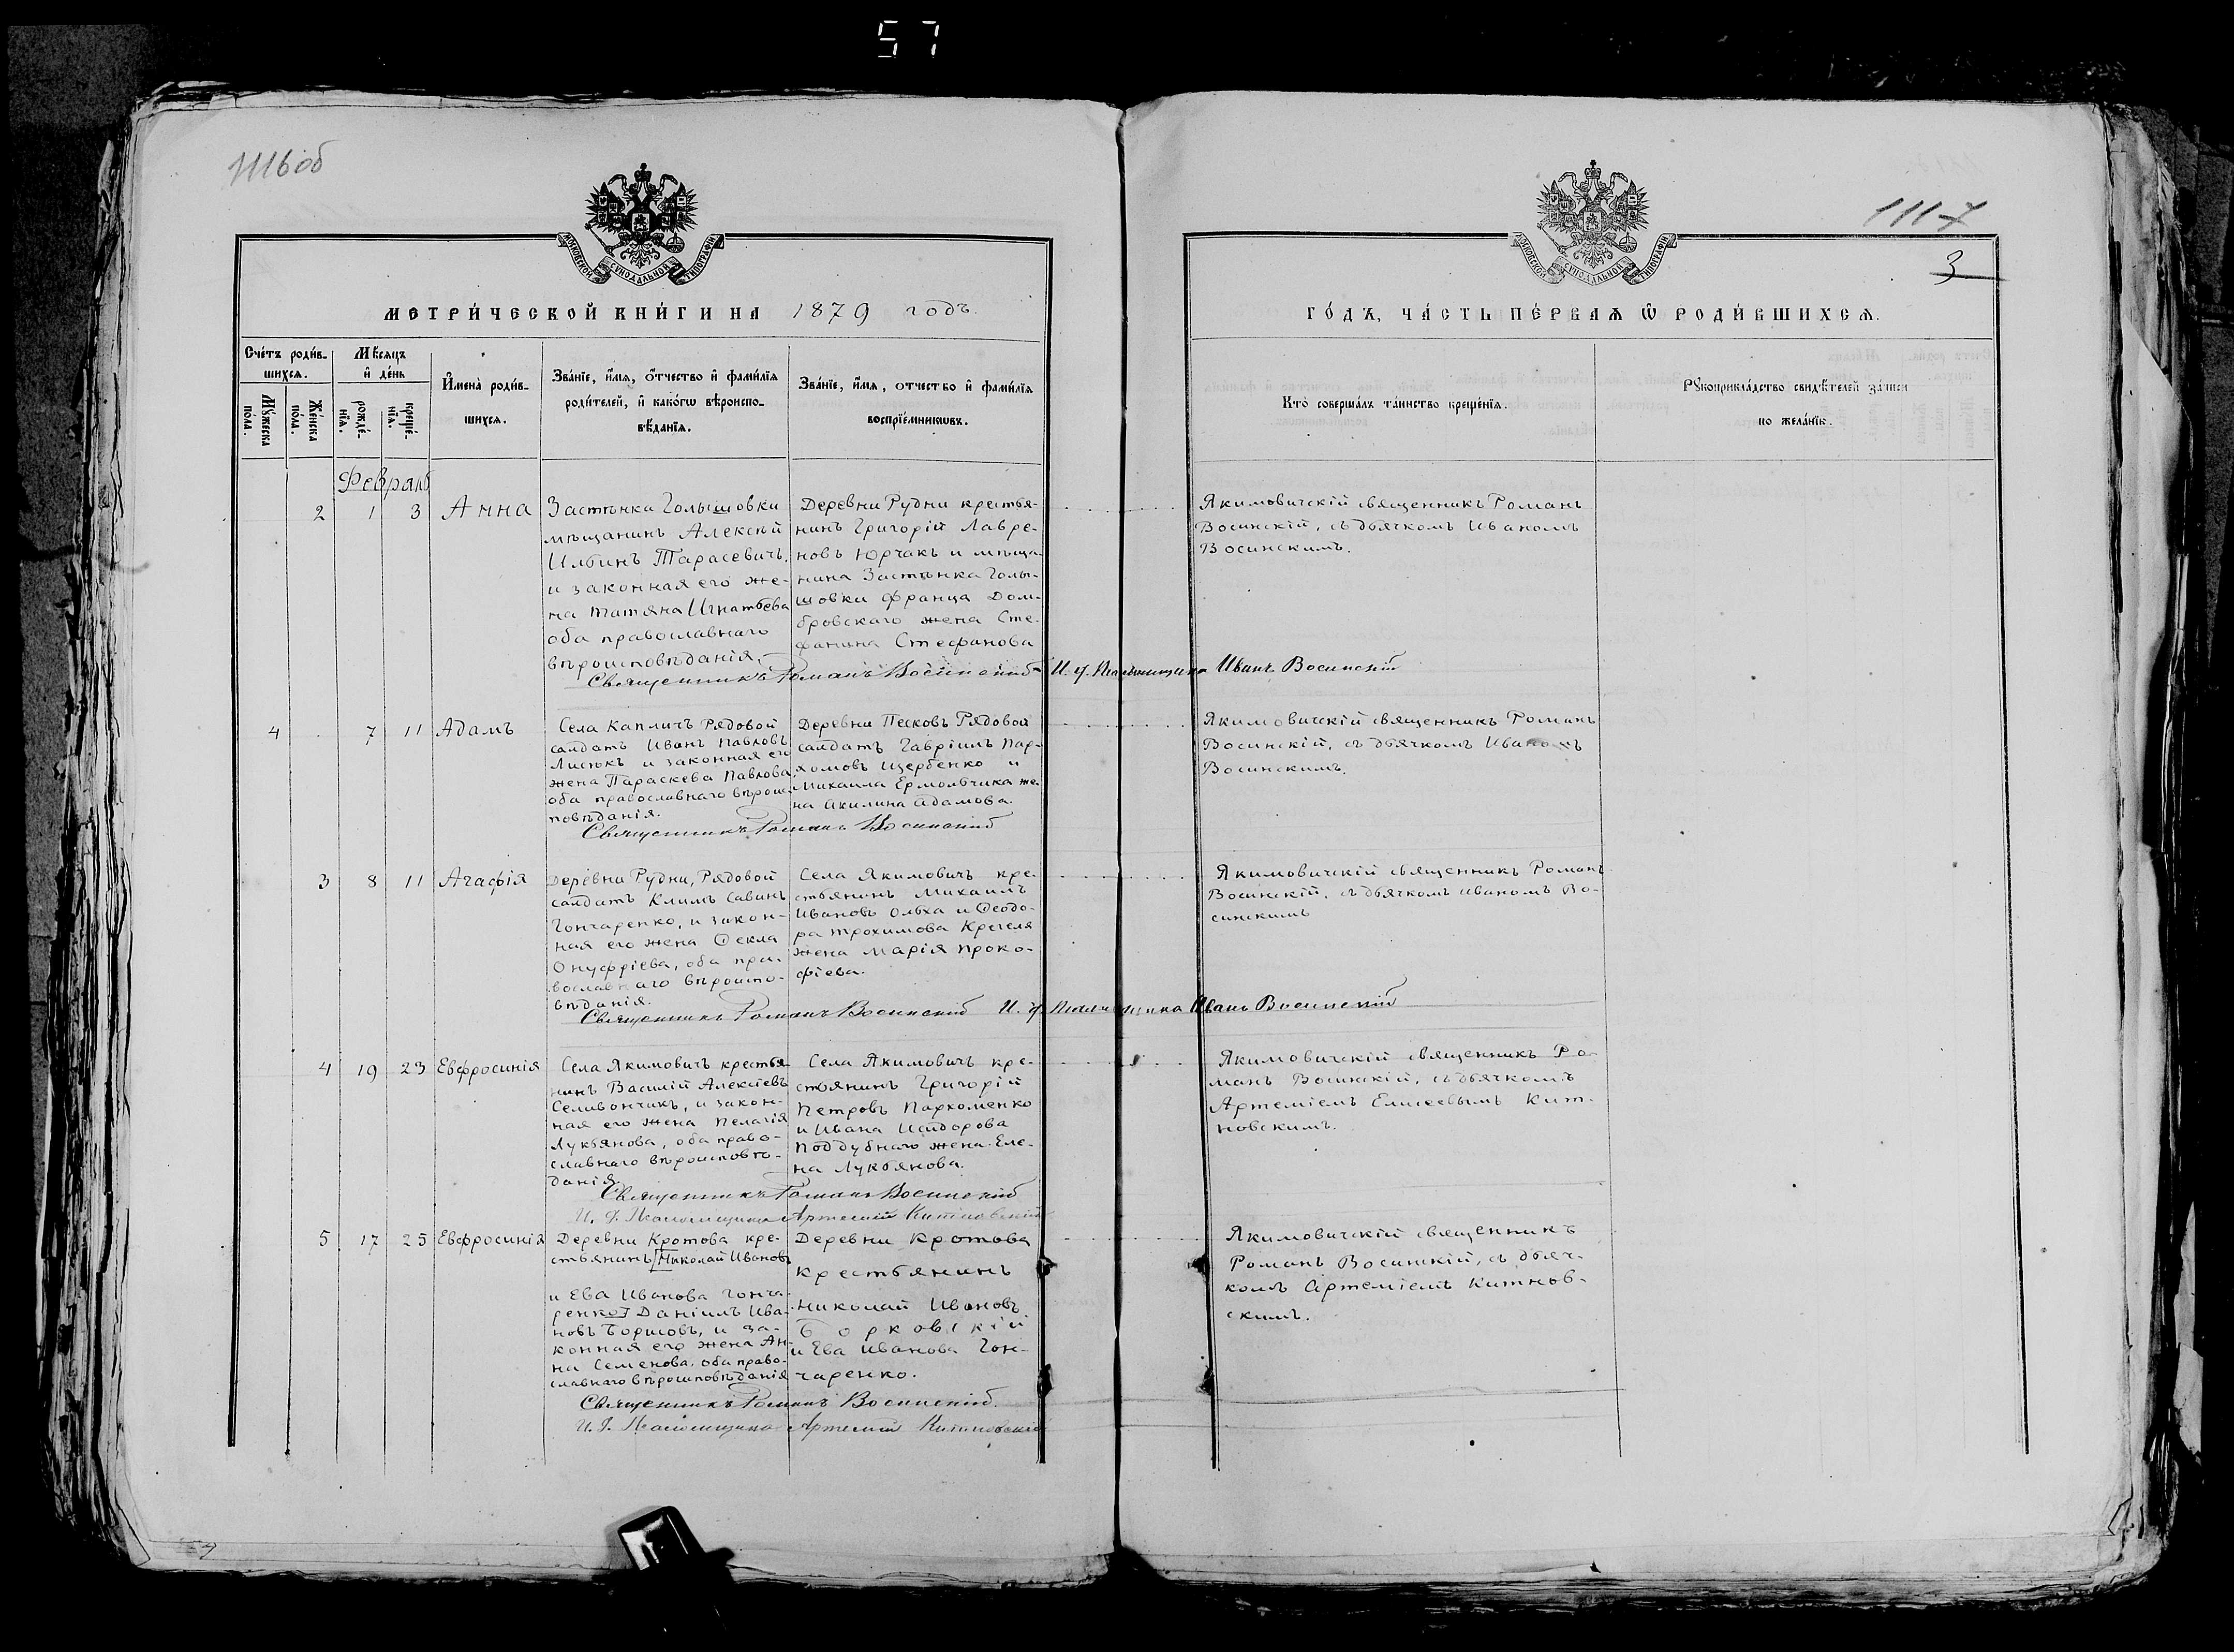 57
1116 об
1117
3
МОСКОВСКОЙ СѴНОДАЛЬНОЙ ТИПОГРАФІИ
МОСКОВСКОЙ СѴНОДАЛЬНОЙ ТИПОГРАФІИ
МЕТРИ́ЧЕСКОЙ КНИ́ГИ НА 1879 годъ.
ГО́ДЪ, ЧА́СТЬ ПЕ́РВАЯ Ѿ РОДИ́ВШИХСЯ.
Сче́тъ роди́в-
шихся.
Мѣсяцъ
и де́нь
Му́жеска по́ла.
Же́нска по́ла.
рожде́-
нїя.
креще́-
нїя.
Имена̀ роди́в-
шихся.
Зва́нїе, и́мя, о́тчество и фами́лїя
роди́телей, и како́гѡ вѣроиспо-
вѣ́данїя.
Зва́нїе, и́мя, отчество и фами́лїя
воспрїе́мникѡвъ.
Кто̀ соверша́лъ та́инство креще́нїя.
Рукоприкла́дство свидѣ́телей за́писи
по жела́нїю.
Февраль
2 1 3 Анна
Застѣнка Голышовки
мѣщанинъ Алексѣй
Ильинъ Тарасевичъ,
и законная его же-
на Татяна Игнатьева
оба православнаго
вѣроисповѣданія.
Деревни Рудни крестья-
нинъ Григорій Лавре-
новъ Юрчакъ и мѣща-
нина Застѣнка Голы-
шовки Франца Дом-
бровскаго жена Сте-
фанина Стефанова
Якимовичскій священникъ Романъ
Восинскій, съ дьячкомъ Иваномъ
Восинскимъ.
Священникъ Романъ Восинскій И. д. Псаломщика Иванъ Восинскій
4 7 11 Адамъ
Села Капличъ Рядовой
салдатъ Иванъ Павловъ
Лисюкъ и законная его
жена Параскева Павлова,
оба православнаго вѣроис-
повѣданія.
Деревни Песковъ Рядовой
салдатъ Гавріилъ Пар-
хомовъ Щербенко и
Михаила Ермольчика же-
на Акилина Адамова.
Якимовичскій священникъ Романъ
Восинскій, съ дьячкомъ Иваномъ
Восинскимъ.
Священникъ Романъ Восинскій
3 8 11 Агафія
Деревни Рудни, Рядовой
салдатъ Климъ Савинъ
Гончаренко, и закон-
ная его жена Ѳекла
Онуфріева, оба пра-
вославнаго вѣроиспо-
вѣданія.
Села Якимовичъ кре-
стьянинъ Михаилъ
Ивановъ Ольха и Ѳеодо-
ра Трохимова Крегеля
жена Марія Проко-
фіева.
Якимовичскій священникъ Романъ
Восинскій, съ дьячкомъ Иваномъ Во-
синскимъ
Священникъ Романъ Восинскій И. д. Псаломщика Иванъ Восинскій
4 19 23 Евфросинія
Села Якимовичъ крестья-
нинъ Василій Алексѣевъ
Селивончикъ, и закон-
ная его жена Пелагія
Лукьянова, оба право-
славнаго вѣроисповѣ-
данія.
Села Якимовичъ кре-
стьянинъ Григорій
Петровъ Пархоменко
и Ивана Исидорова
Поддубнаго жена Еле-
на Лукьянова.
Якимовичскій священникъ Ро-
манъ Восинскій, съ дьячкомъ
Артеміемъ Елисеевымъ Кит-
новскимъ.
Священникъ Романъ Восинскій
И. д. Псаломщика Артемій Китновскій
5 17 25 Евфросинія
Деревни Кротова кре-
стьянинъ [Николай Ивановъ
и Ева Иванова Гонча-
ренко] Даніилъ Ива-
новъ Борисовъ, и за-
конная его жена Ан-
на Семенова, оба право-
славнаго вѣроисповѣданія
Деревни Кротова
крестьянинъ
Николай Ивановъ
Борковскій
и Ева Иванова Гон-
чаренко.
Якимовичскій священникъ
Романъ Восинскій, съ дьяч-
комъ Артеміемъ Китнов-
скимъ.
Священникъ Романъ Восинскій.
И. д. Псаломщика Артемій Китновскій